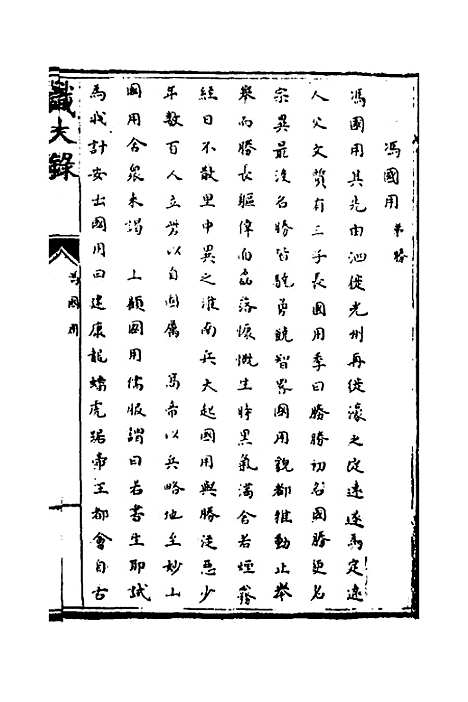 馮國用 弟勝
馮國用其先由泗徙光州再徙濠之定遠遂馬定遠
人父文質有三子長國用季曰勝勝初名國勝更名
宗異最後名勝皆驍勇競智畧國用貌都雅動止舉
舉而勝長軀偉面磊落慷慨生時黑氣滿舍若煙霧
經日不散里中異之淮南兵大起國用與勝從惡少
年數百人立寨以自固屬 高帝以兵略地至妙山
國用舍衆来謁 上顧國用儒服謂曰若書生耶試
為我計安出國用曰建康龍蟠虎踞帝王都會自古
識大錄
馮國用